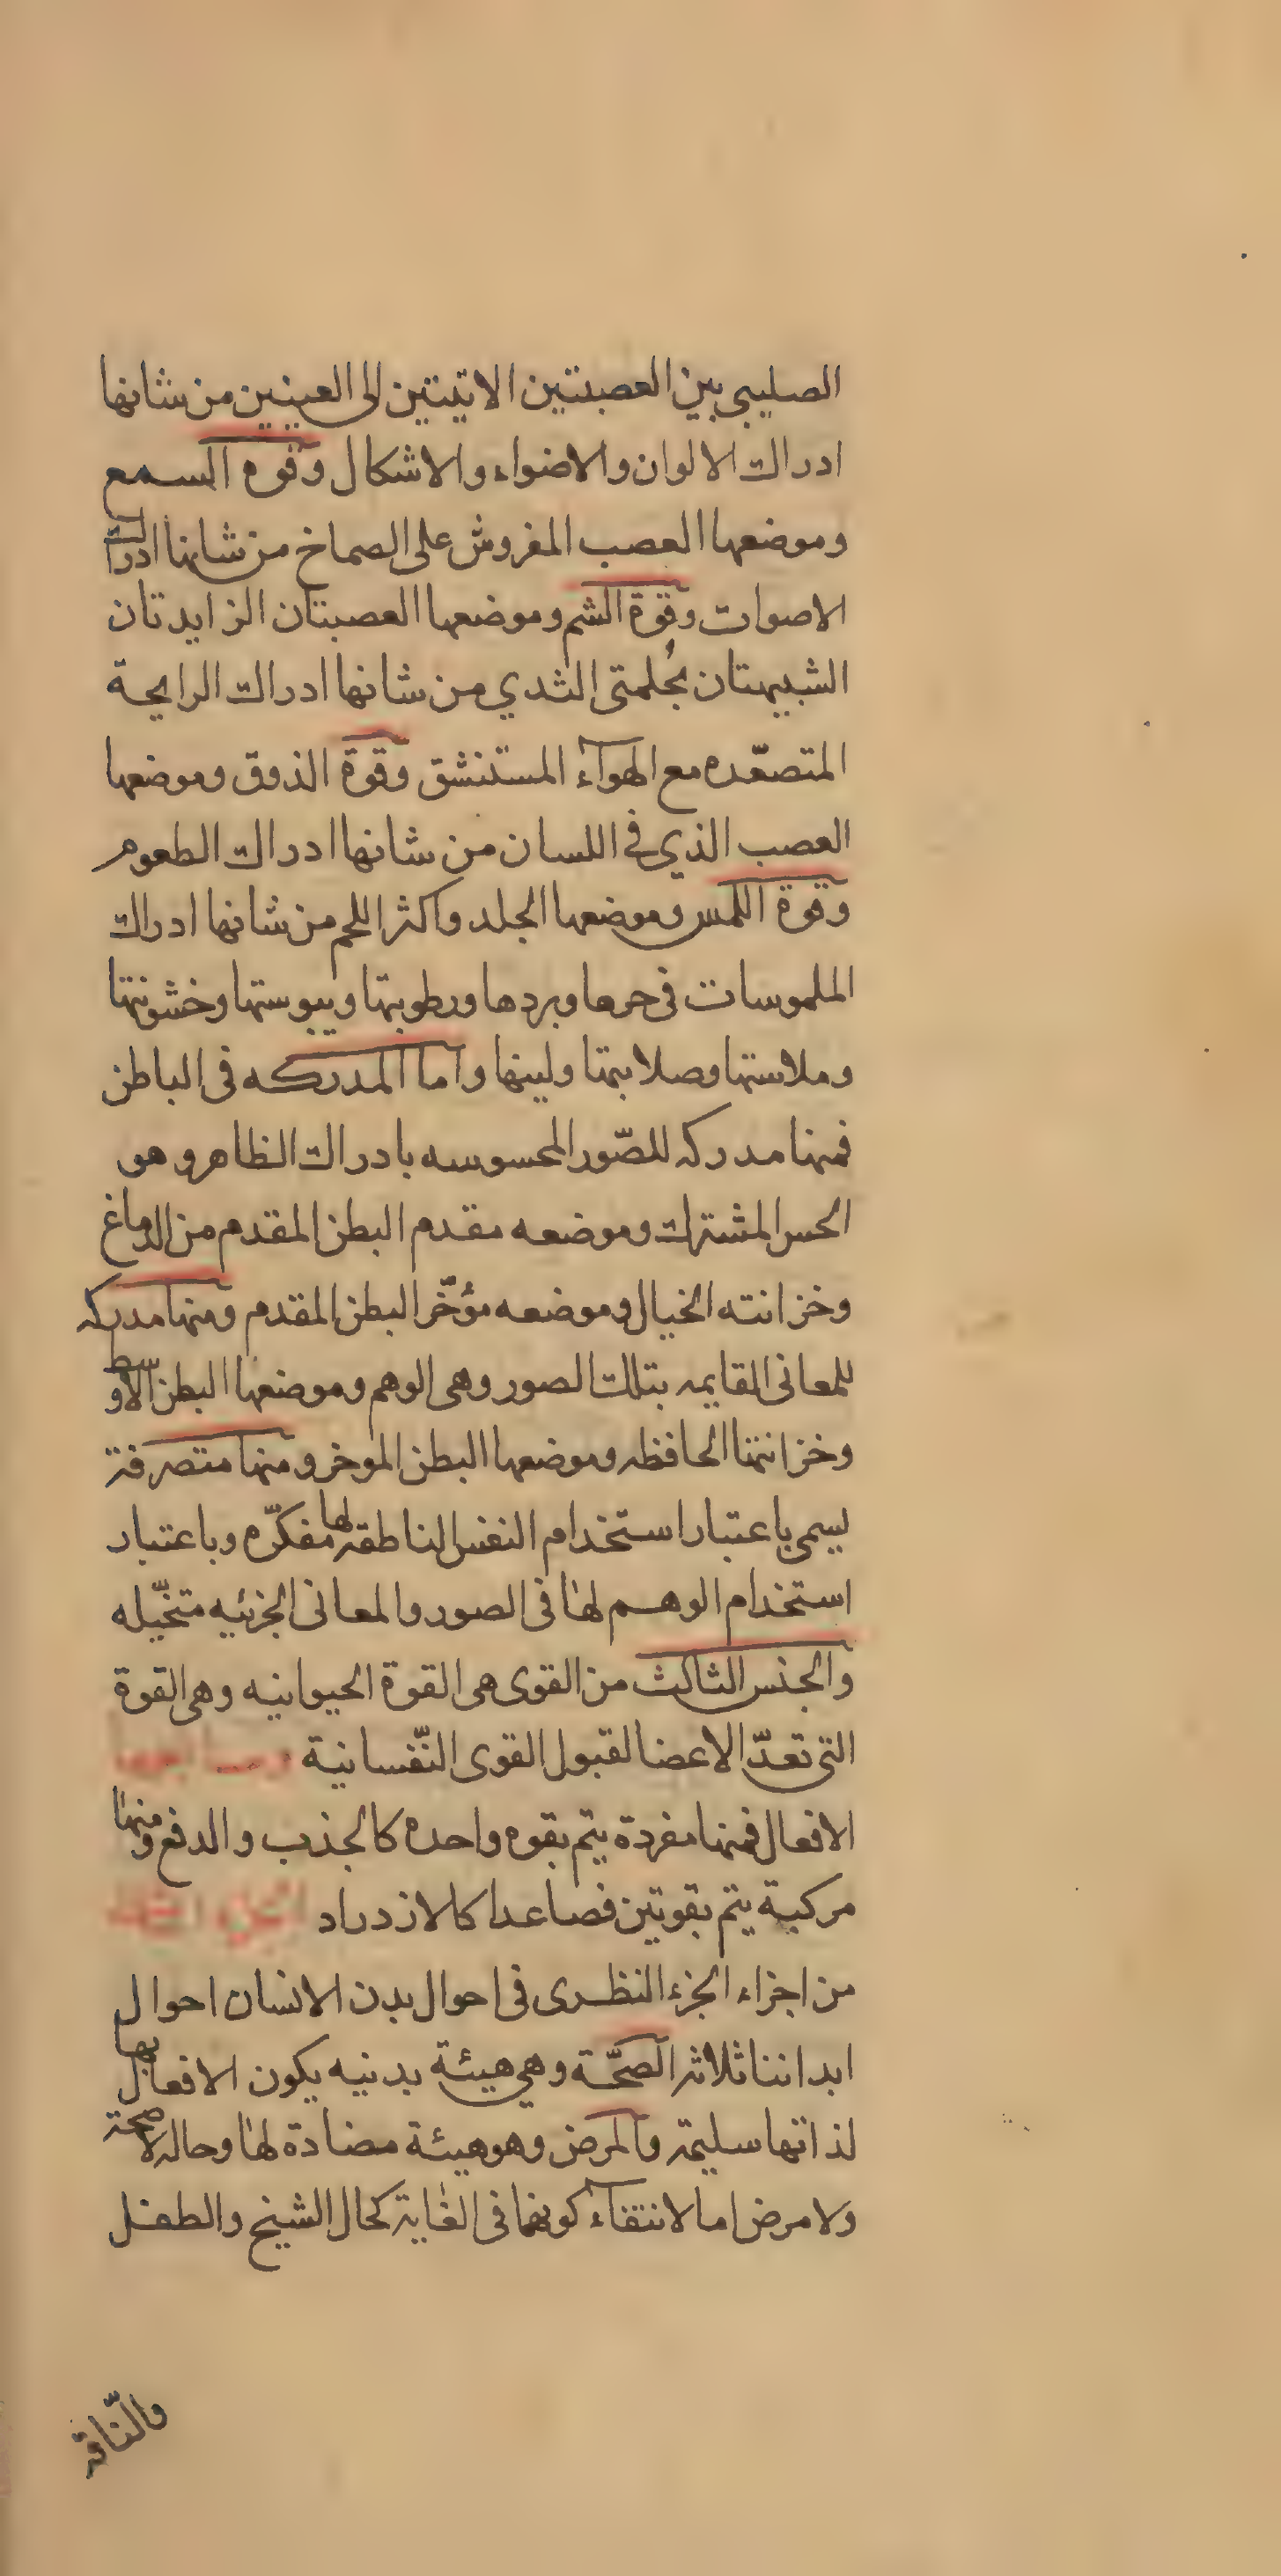 الصليبي بين العصبتين الاتيتين الى العينين من شانها
ادراك الالوان والاضواء والاشكال وقوه السمع
وموضعها العصب المفروش على الصماخ من شانها ادراك
الاصوات وقوة الشم وموضعها العصبتان الزايدتان
الشبيهتان بحُلمتى الثدي من شانها ادراك الرايحة
المتصعّده مع الهوآء المستنشق وقوة الذوق وموضعها
العصب الذي في اللسان من شانها ادراك الطعوم
وقوة اللمس وموضعها الجلد واكثر اللحم من شانها ادراك
الملموسات فى حرها وبردها ورطوبتها ويبوستها وخشونتها
وملاستها وصلابتها ولينها واما المدركه فى الباطن
فمنها مدركه للصّور المحسوسه بادراك الظاهر وهى
الحس المشترك وموضعه مقدم البطن المقدم من الدماغ
وخزانته الخيال وموضعه مؤخّر البطن المقدم ومنها مدركه
للمعانى القايمه بتلك الصور وهى الوهم وموضعها البطن الاوسط
وخزانتها الحافظه وموضعها البطن الموخر ومنها متصرفة
يسمى باعتبار استخدام النفس الناطقه لها مفكّره وباعتبار
استخدام الوهم لها فى الصور والمعانى الجزئيه متخيّله
والجنس الثالث من القوى هى القوة الحيوانيه وهى القوة
التى تعدّ الاعضا لقبول القوى النّفسانية
الافعال فمنها مفردة يتم بقوه واحده كالجذب والدفع ومنها
مركبة يتم بقوتين فصاعدا كالازدراد
من اجزاء الجزء النظرى فى احوال بدن الانسان احوال
ابداننا ثلاثه الصحّة وهي هيئة بدنيه يكون الافعال بها
لذاتها سليمة والمرض وهو هيئة مضادة لها وحاله لا صحة
ولا مرض اما لانتفآء كونهما فى الغاية كحال الشيخ والطفل
والنّاقه